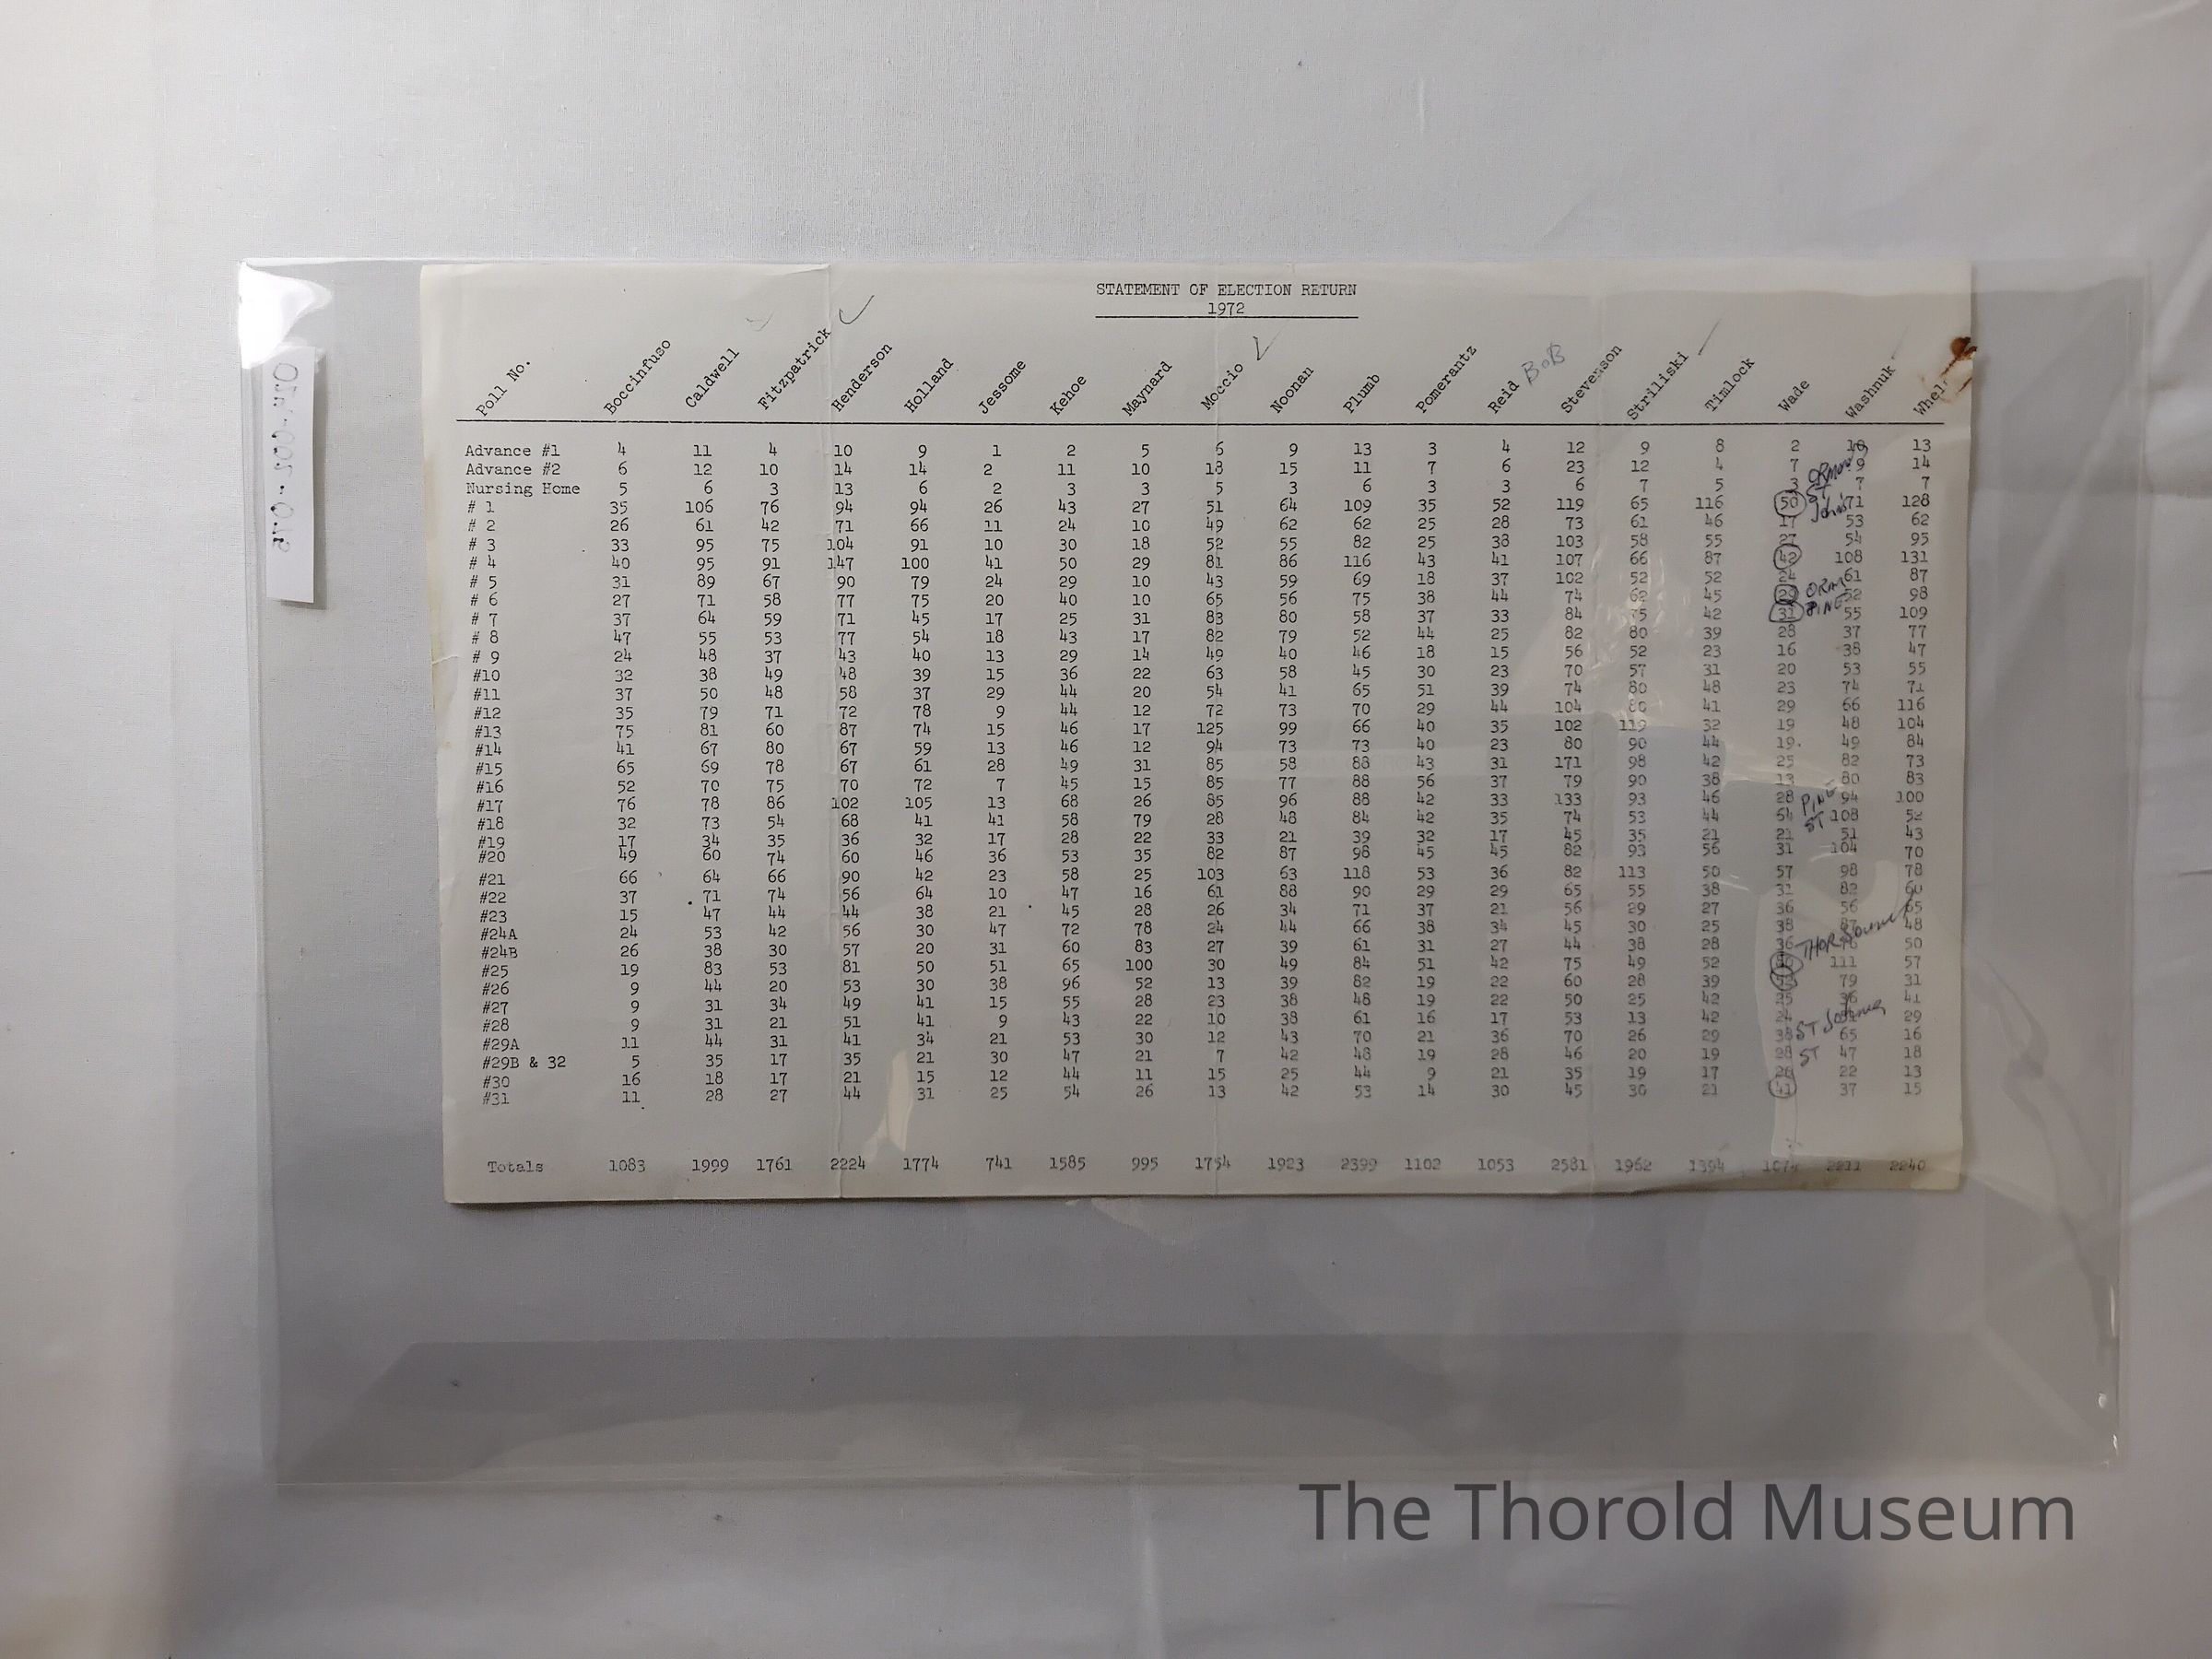 STATEMENT OF ELECTION RETURN
1972
Poll No. Boccinfuso Caldwell Fitzpatrick Henderson Holland Jessome Kehoe Maynard Moccio Noonan Plumb Pomerantz Reid BOB Stevenson Striliski Timlock Wade Washnuk
Advance #1 4 11 4 10 9 1 2 5 6 9 13 3 4 12 9 8 2 13
Advance #2 6 12 10 14 14 2 11 10 18 15 11 7 6 23 12 4 7 9 14
Nursing Home 5 6 3 13 6 2 3 3 5 3 6 3 3 6 7 5 3 7 7
# 1 35 106 76 94 94 26 43 27 51 64 109 35 52 119 65 116 50 71 128
# 2 26 61 42 71 66 11 24 10 49 62 62 25 28 73 61 46 17 53 62
# 3 33 95 75 104 91 10 30 18 52 55 82 25 38 103 58 55 27 54 95
# 4 40 95 91 147 100 41 50 29 81 86 116 43 41 107 66 87 42 108 131
# 5 31 89 67 90 79 24 29 10 43 59 69 18 37 102 52 52 24 61 87
# 6 27 71 58 77 75 20 40 10 65 56 75 38 44 74 62 45 52 98
# 7 37 64 59 71 45 17 25 31 83 80 58 37 33 84 75 42 31 PINE 55 109
# 8 47 55 53 77 54 18 43 17 82 79 52 44 25 82 80 39 28 37 77
# 9 24 48 37 43 40 13 29 14 49 40 46 18 15 56 52 23 16 38 47
#10 32 38 49 48 39 15 36 22 63 58 45 30 23 70 57 31 20 53 55
#11 37 50 48 58 37 29 44 20 54 41 65 51 39 74 80 48 23 74 71
#12 35 79 71 72 78 9 44 12 72 73 70 29 44 104 80 41 29 66 116
#13 75 81 60 87 74 15 46 17 125 99 66 40 35 102 119 32 19 48 104
#14 41 67 80 67 59 13 46 12 94 73 73 40 23 80 90 44 19. 49 84
#15 65 69 78 67 61 28 49 31 85 58 88 43 31 171 98 42 25 82 73
#16 52 70 75 70 72 7 45 15 85 77 88 56 37 79 90 38 13 80 83
#17 76 78 86 102 105 13 68 26 85 96 88 42 33 133 93 46 28 PINE 94 100
#18 32 73 54 68 41 41 58 79 28 48 84 42 35 74 53 44 54 ST 108 52
#19 17 34 35 36 32 17 28 22 33 21 39 32 17 45 35 21 21 51 43
#20 49 60 74 60 46 36 53 35 82 87 98 45 45 82 93 56 31 104 70
#21 66 64 66 90 42 23 58 25 103 63 118 53 36 82 113 50 57 98 78
#22 37 71 74 56 64 10 47 16 61 88 90 29 29 65 55 38 31 82 60
#23 15 47 44 44 38 21 45 28 26 34 71 37 21 56 29 27 36 56 65
#24A 24 53 42 56 30 47 72 78 24 44 66 38 34 45 30 25 38 87 48
#24B 26 38 30 57 20 31 60 83 27 39 61 31 27 44 38 28 36 THOR 50
#25 19 83 53 81 50 51 65 100 30 49 84 51 42 75 49 52 111 57
#26 9 44 20 53 30 38 96 52 13 39 82 19 22 60 28 39 79 31
#27 9 31 34 49 41 15 55 28 23 38 48 19 22 50 25 42 25 36 41
#28 9 31 21 51 41 9 43 22 10 38 61 16 17 53 13 42 24 29
#29A 11 44 31 41 34 21 53 30 12 43 70 21 36 70 26 29 38 ST 65 16
#29B & 32 5 35 17 35 21 30 47 21 7 42 48 19 28 46 20 19 28 ST 47 18
#30 16 18 17 21 15 12 44 11 15 25 44 9 21 35 19 17 26 22 13
#31 11 28 27 44 31 25 54 26 13 42 53 14 30 45 30 21 41 37 15
Totals 1083 1999 1761 2224 1774 741 1585 995 1754 1923 2399 1102 1053 2581 1962 1394 2211 2240
The Thorold Museum